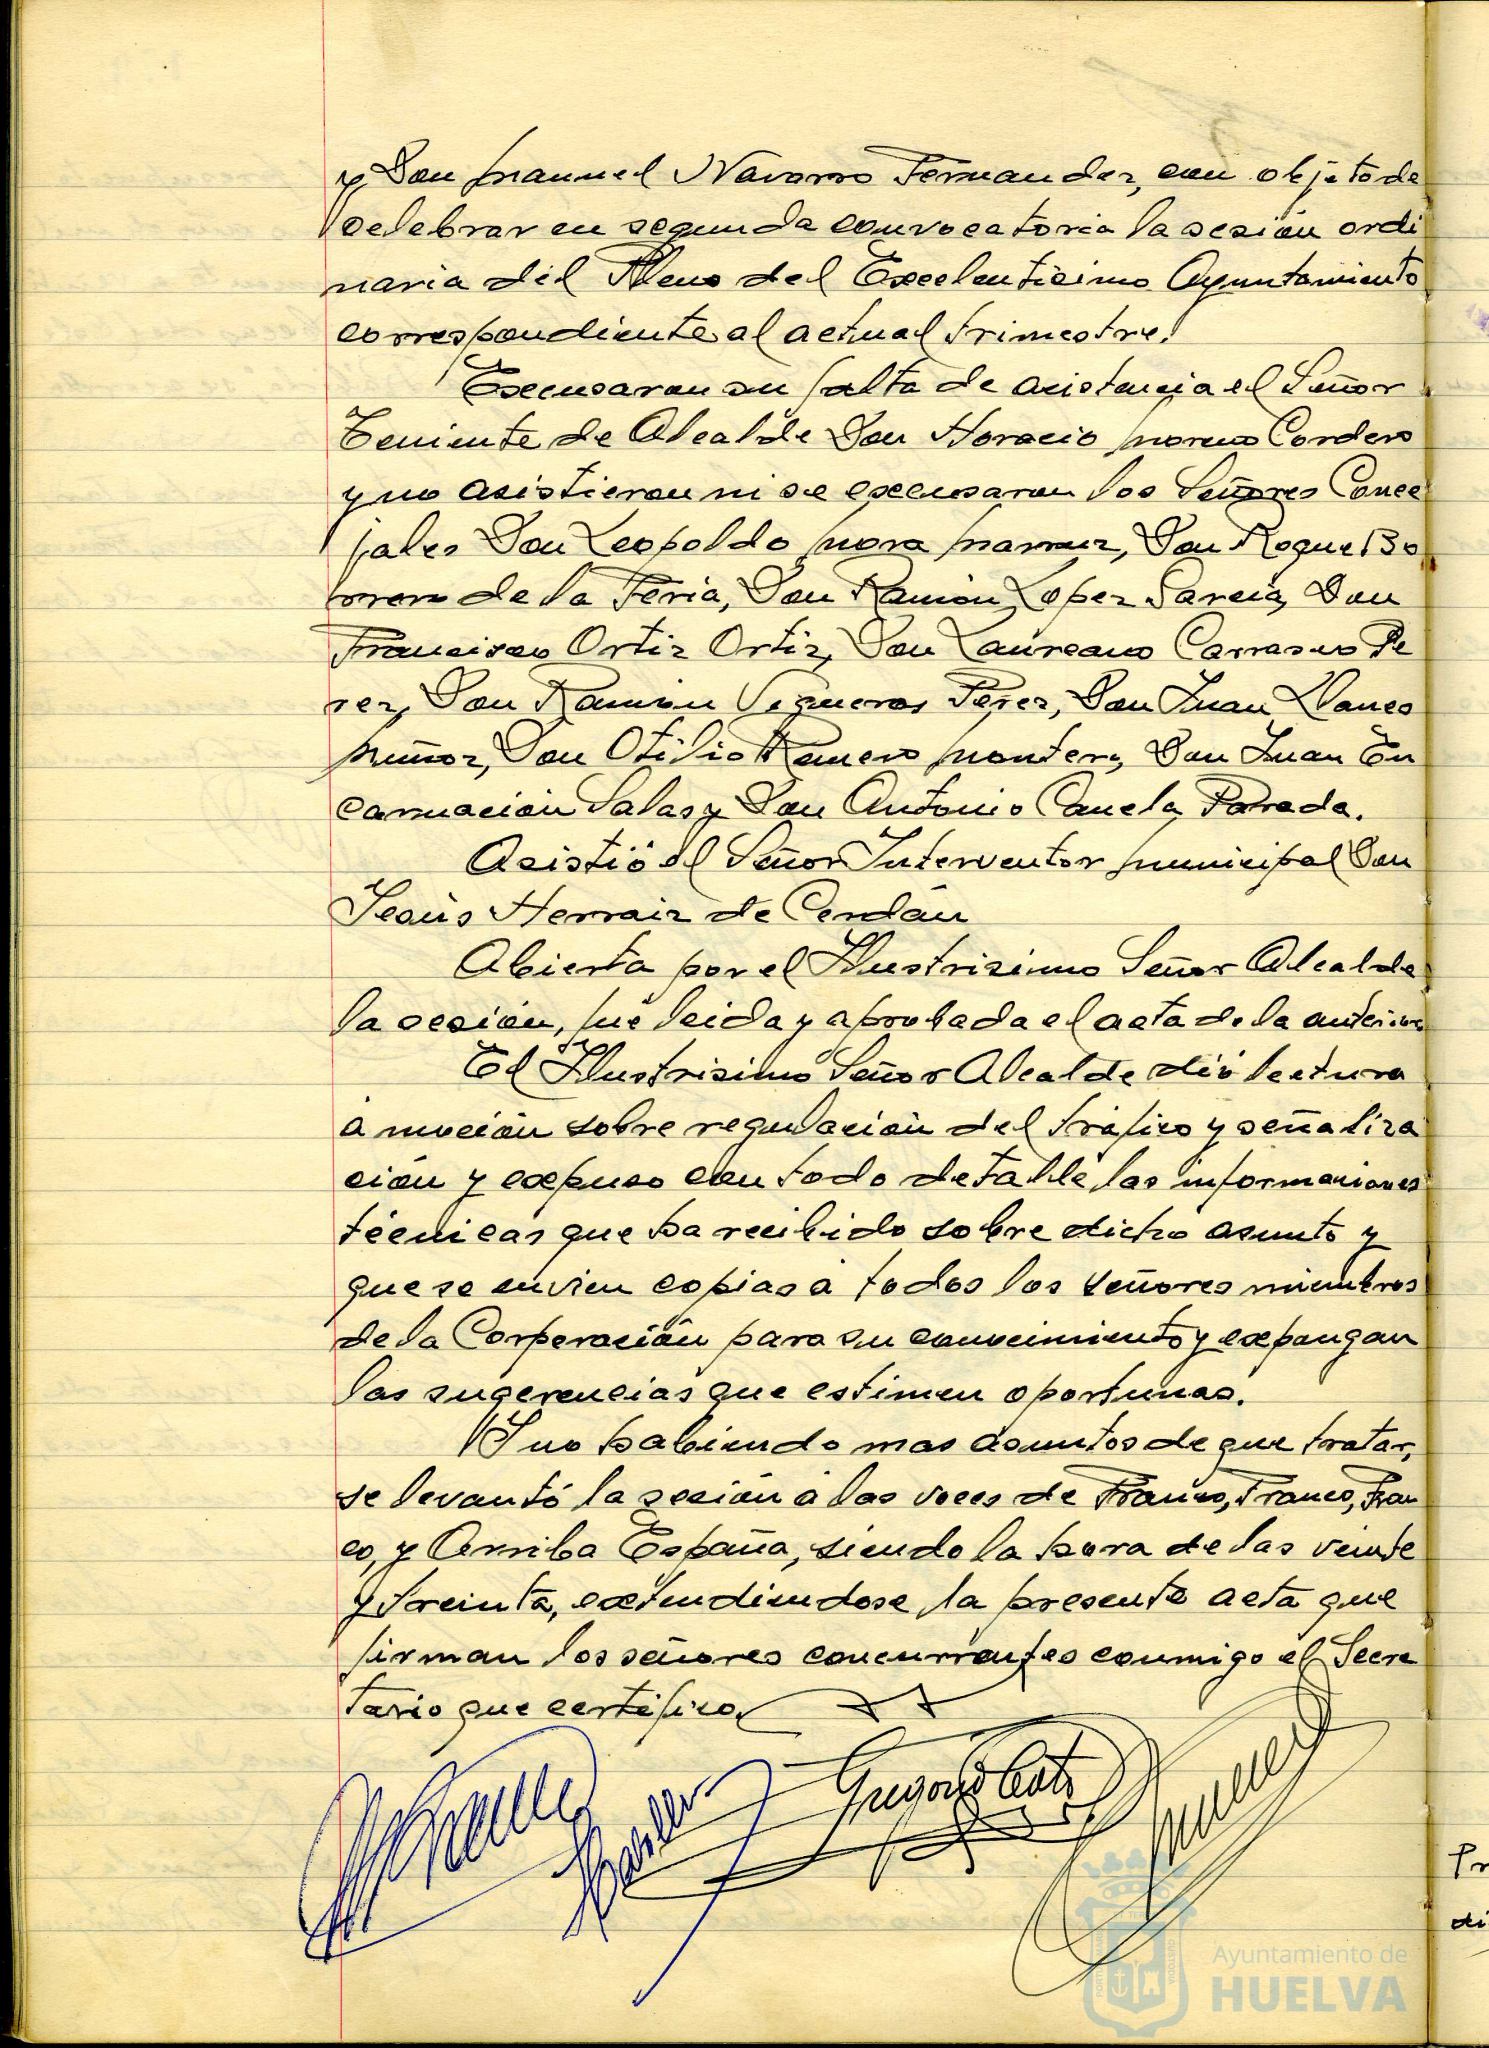 y Don Manuel Navarro Fernandez, con objeto de
celebrar en segunda convocatoria la sesión ordi
naria del Pleno del Excelentisimo Ayuntamiento
correspondiente al actual trimestre.
Excusaron su falta de asistencia el Señor
Teniente de Alcalde Don Horacio Moreno Cordero
y no asistieron ni se excusaron los Señores Conce
jales Don Leopoldo Mora Don Roque Bo
rrero de la Feria, Don Ramón Lopez Garcia, Don
Francisco Ortiz Ortiz, Don Laureano Carrasco Pe
rez, Don Ramón Vigueras Perez, Don Juan Llanes
Muñoz, Don Otilio Romero Montero, Don Juan En
carnación Salas y Don Antonio Canela Parada.
Asistió el Señor Interventor Municipal Don
Jesús Herraiz de Cerdán
Abierta por el Ilustrisimo Señor Alcalde
la sesión, fué leida y aprobada el acta de la anterior
El Ilustrisimo Señor Alcalde dió lectura
a moción sobre regulación del tráfico y señaliza
ción y expuso con todo detalle las informaciones
técnicas que ha recibido sobre dicho asunto y
que se envien copias a todos los señores miembros
de la Corporación para su conocimiento y expongan
las sugerencias que estimen oportunas.
Y no habiendo mas asuntos de que tratar,
se levantó la sesión a las voces de Franco, Franco, Fran
co, y Arriba España, siendo la hora de las veinte
y treinta, extendiendose la presente acta que
firman los señores concurrentes conmigo el Secre
tario que certifico.
Gregorio
Pr
di
Ayuntamiento de
HUELVA